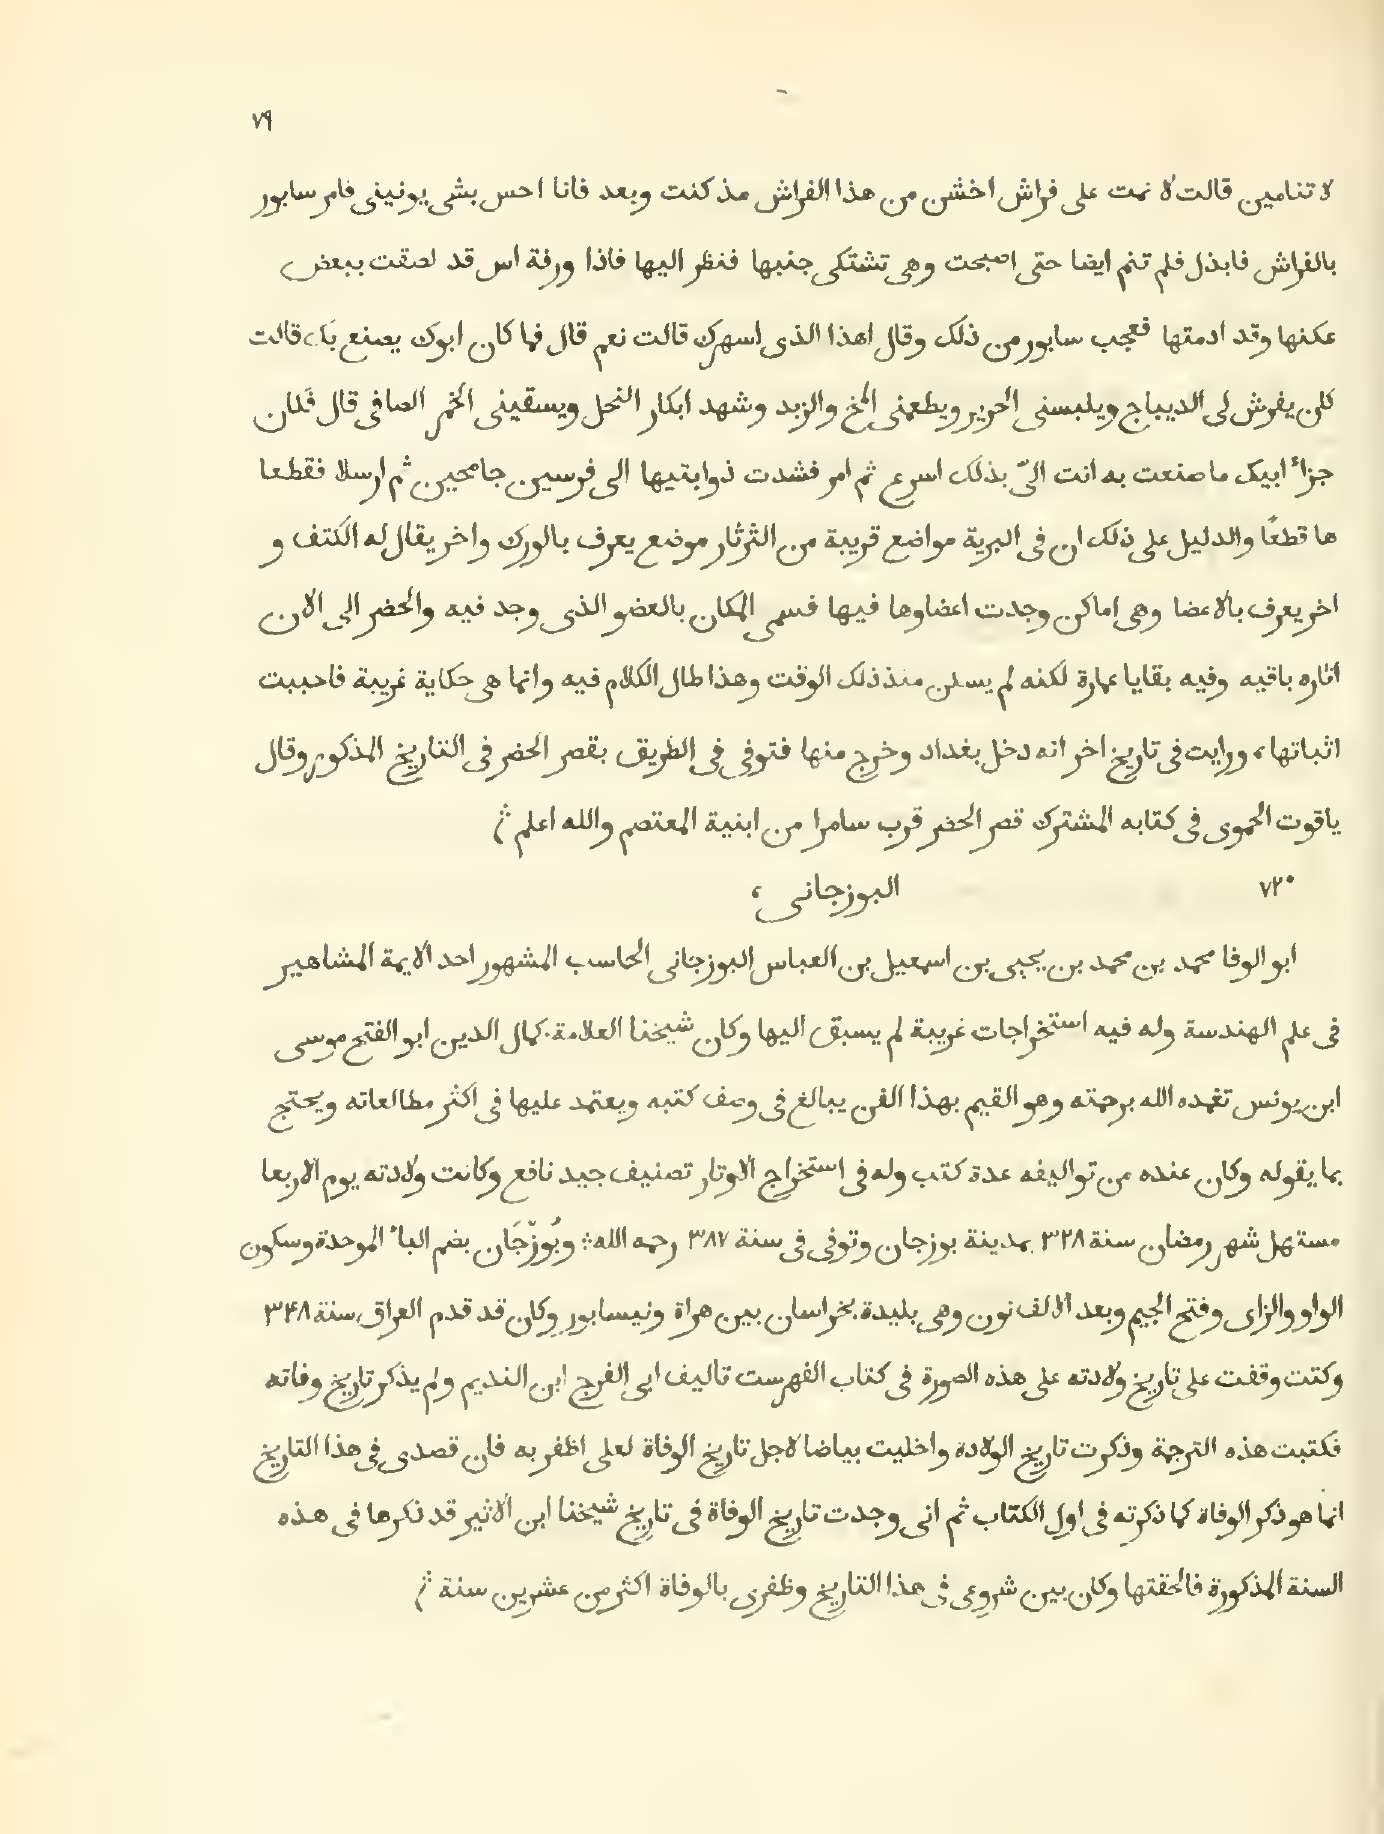 ٧٩
لا تنامين قالت لا نمت على فراش اخشن من هذا الفراش مذ كنت وبعد فانا احس بشى يونينى فامر سابور
بالفراش فابذل فلم تنم ايضا حتى اصبحت وهى تشتكى جنبها فنظر اليها فاذا ورقة اس قد لصقت ببعض
عكنها وقد ادمتها فعجب سابور من ذلك وقال اهذا الذى اسهرك قالت نعم قال فما كان ابوك يصنع بك قالت
كان يفرش لى الديباج ويلبسنى الحرير ويطعمنى المخ والزبد وشهد ابكار النحل ويسقينى الخمر الصافى قال فكان
جزاء ابيك ما صنعت به انت الىّ بذلك اسرع ثم امر فشدت ذوابتيها الى فرسين جامحين ثم ارسلا فقطعا
ها قطعًا والدليل على ذلك ان فى البرية مواضع قريبة من الثرثار موضع يعرف بالورك واخر يقال له الكتف و
اخر يعرف بالاعضا وهى اماكن وجدت اعضاوها فيها فسمى المكان بالعضو الذى وجد فيه والحضر الى الان
اثاره باقيه وفيه بقايا عمارة لكنه لم يسكن منذ ذلك الوقت وهذا طال الكلام فيه وانما هى حكاية غريبة فاحببت
اثباتها، ورايت فى تاريخ اخر انه دخل بغداد وخرج منها فتوفى فى الطريق بقصر الحضر فى التاريخ المذكور وقال
ياقوت الحموى فى كتابه المشترك قصر الحضر قرب سامرا من ابنية المعتصم والله اعلم ؞
٧٢٠ البوزجانى ،
ابو الوفا محمد بن محمد بن يحيى بن اسمعيل بن العباس البوزجانى الحاسب المشهور احد الايمة المشاهير
فى علم الهندسة وله فيه استخراجات غريبة لم يسبق اليها وكان شيخنا العلامة كمال الدين ابو الفتح موسى
ابن يونس تغمده الله برحمته وهو القيم بهذا الفن يبالغ فى وصف كتبه ويعتمد عليها فى اكثر مطالعاته ويحتج
بما يقوله وكان عنده من تواليفه عدة كتب وله فى استخراج الاوتار تصنيف جيد نافع وكانت ولادته يوم الاربعا
مستهل شهر رمضان سنة ٣٢٨ بمدينة بوزجان وتوفى فى سنة ٣٨٧ رحمه الله ؞ وبُوزّجَان بضم الباء الموحدة وسكون
الواو والزاى وفتح الجيم وبعد الالف نون وهى بليدة بخراسان بين هراة ونيسابور وكان قد قدم العراق سنة ٣٤٨
وكنت وقفت على تاريخ ولادته على هذه الصورة فى كتاب الفهرست تاليف ابى الفرج ابن النديم ولم يذكر تاريخ وفاته
فكتبت هذه الترجمة وذكرت تاريخ الولادة واخليت بياضا لاجل تاريخ الوفاة لعلى اظفر به فان قصدى فى هذا التاريخ
انما هو ذكر الوفاة كما ذكرته فى اول الكتاب ثم انى وجدت تاريخ الوفاة فى تاريخ شيخنا ابن الاثير قد ذكرها فى هذه
السنة المذكورة فالحقتها وكان بين شروعى فى هذا التاريخ وظفرى بالوفاة اكثر من عشرين سنة ؞